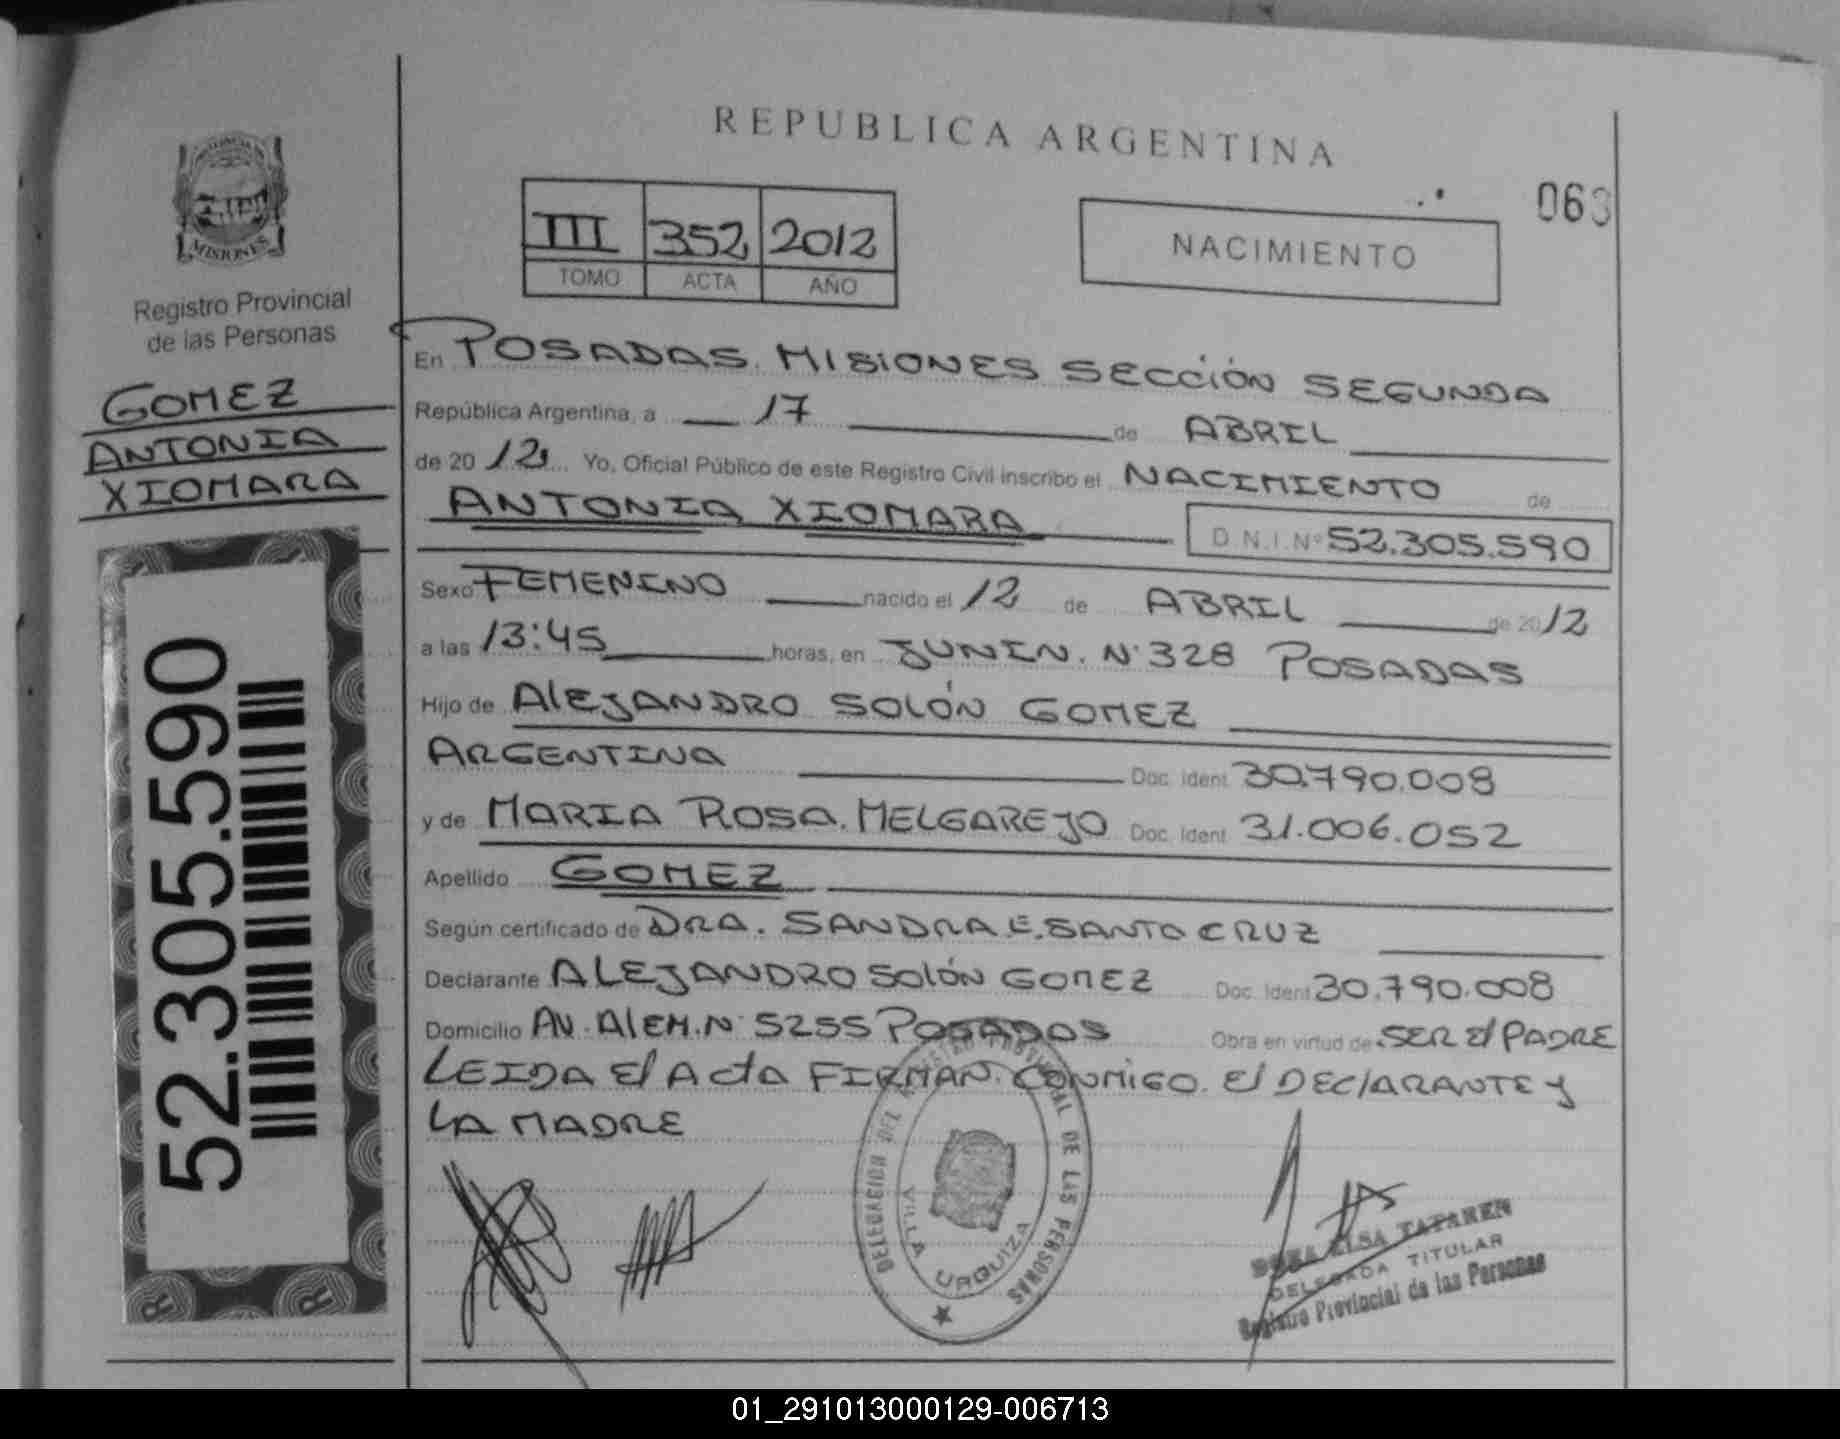 REPUBLICA ARGENTINA
063
III 352 2012
TOMO ACTA AÑO
NACIMIENTO
MISIONES
Registro Provincial
de las Personas
GOMEZ
ANTONIA
XIOMARA
52.305.590
En POSADAS. MISIONES SECCIÓN SEGUNDA
República Argentina, a 17 de ABRIL
de 20 12 Yo, Oficial Público de este Registro Civil inscribo el NACIMIENTO de
ANTONIA XIOMARA D.N.I.Nº 52.305.590
Sexo FEMENINO nacido el 12 de ABRIL de 20 12
a las 13:45 horas, en JUNIN. Nº 328 POSADAS
Hijo de AlEJANDRO SOLÓN GOMEZ
ARGENTINA Doc. Ident. 30.790.008
y de MARIA ROSA. MELGAREJO Doc. Ident. 31.006.052
Apellido GOMEZ
Según certificado de DRA. SANDRA E. SANTA CRUZ
Declarante ALEJANDRO SOlÓN GOMEZ Doc. Ident. 30.790.008
Domicilio AV. AlEM. Nº 5255 POSADAS Obra en virtud de SER El PADRE
LEIDA El ActA FIRMAN. CONMIGO. El DEClARANTE y
LA MADRE
DELEGACION DEL REGISTRO PROVINCIAL DE LAS PERSONAS
VILLA URQUIZA
ELSA
DELEGADA TITULAR
Registro Provincial de las Personas
01_291013000129-006713